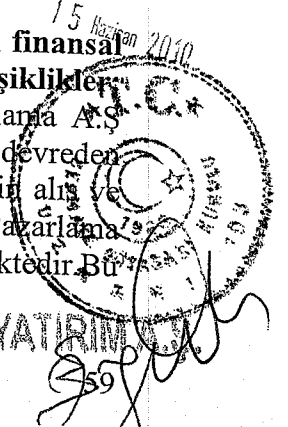 15 Haziran 2010
finansal
şiklikler
T.C.
lama A.Ş
devreden
in alış ve
Pazarlama
ktedir.Bu
YATIRIM A.Ş.
59